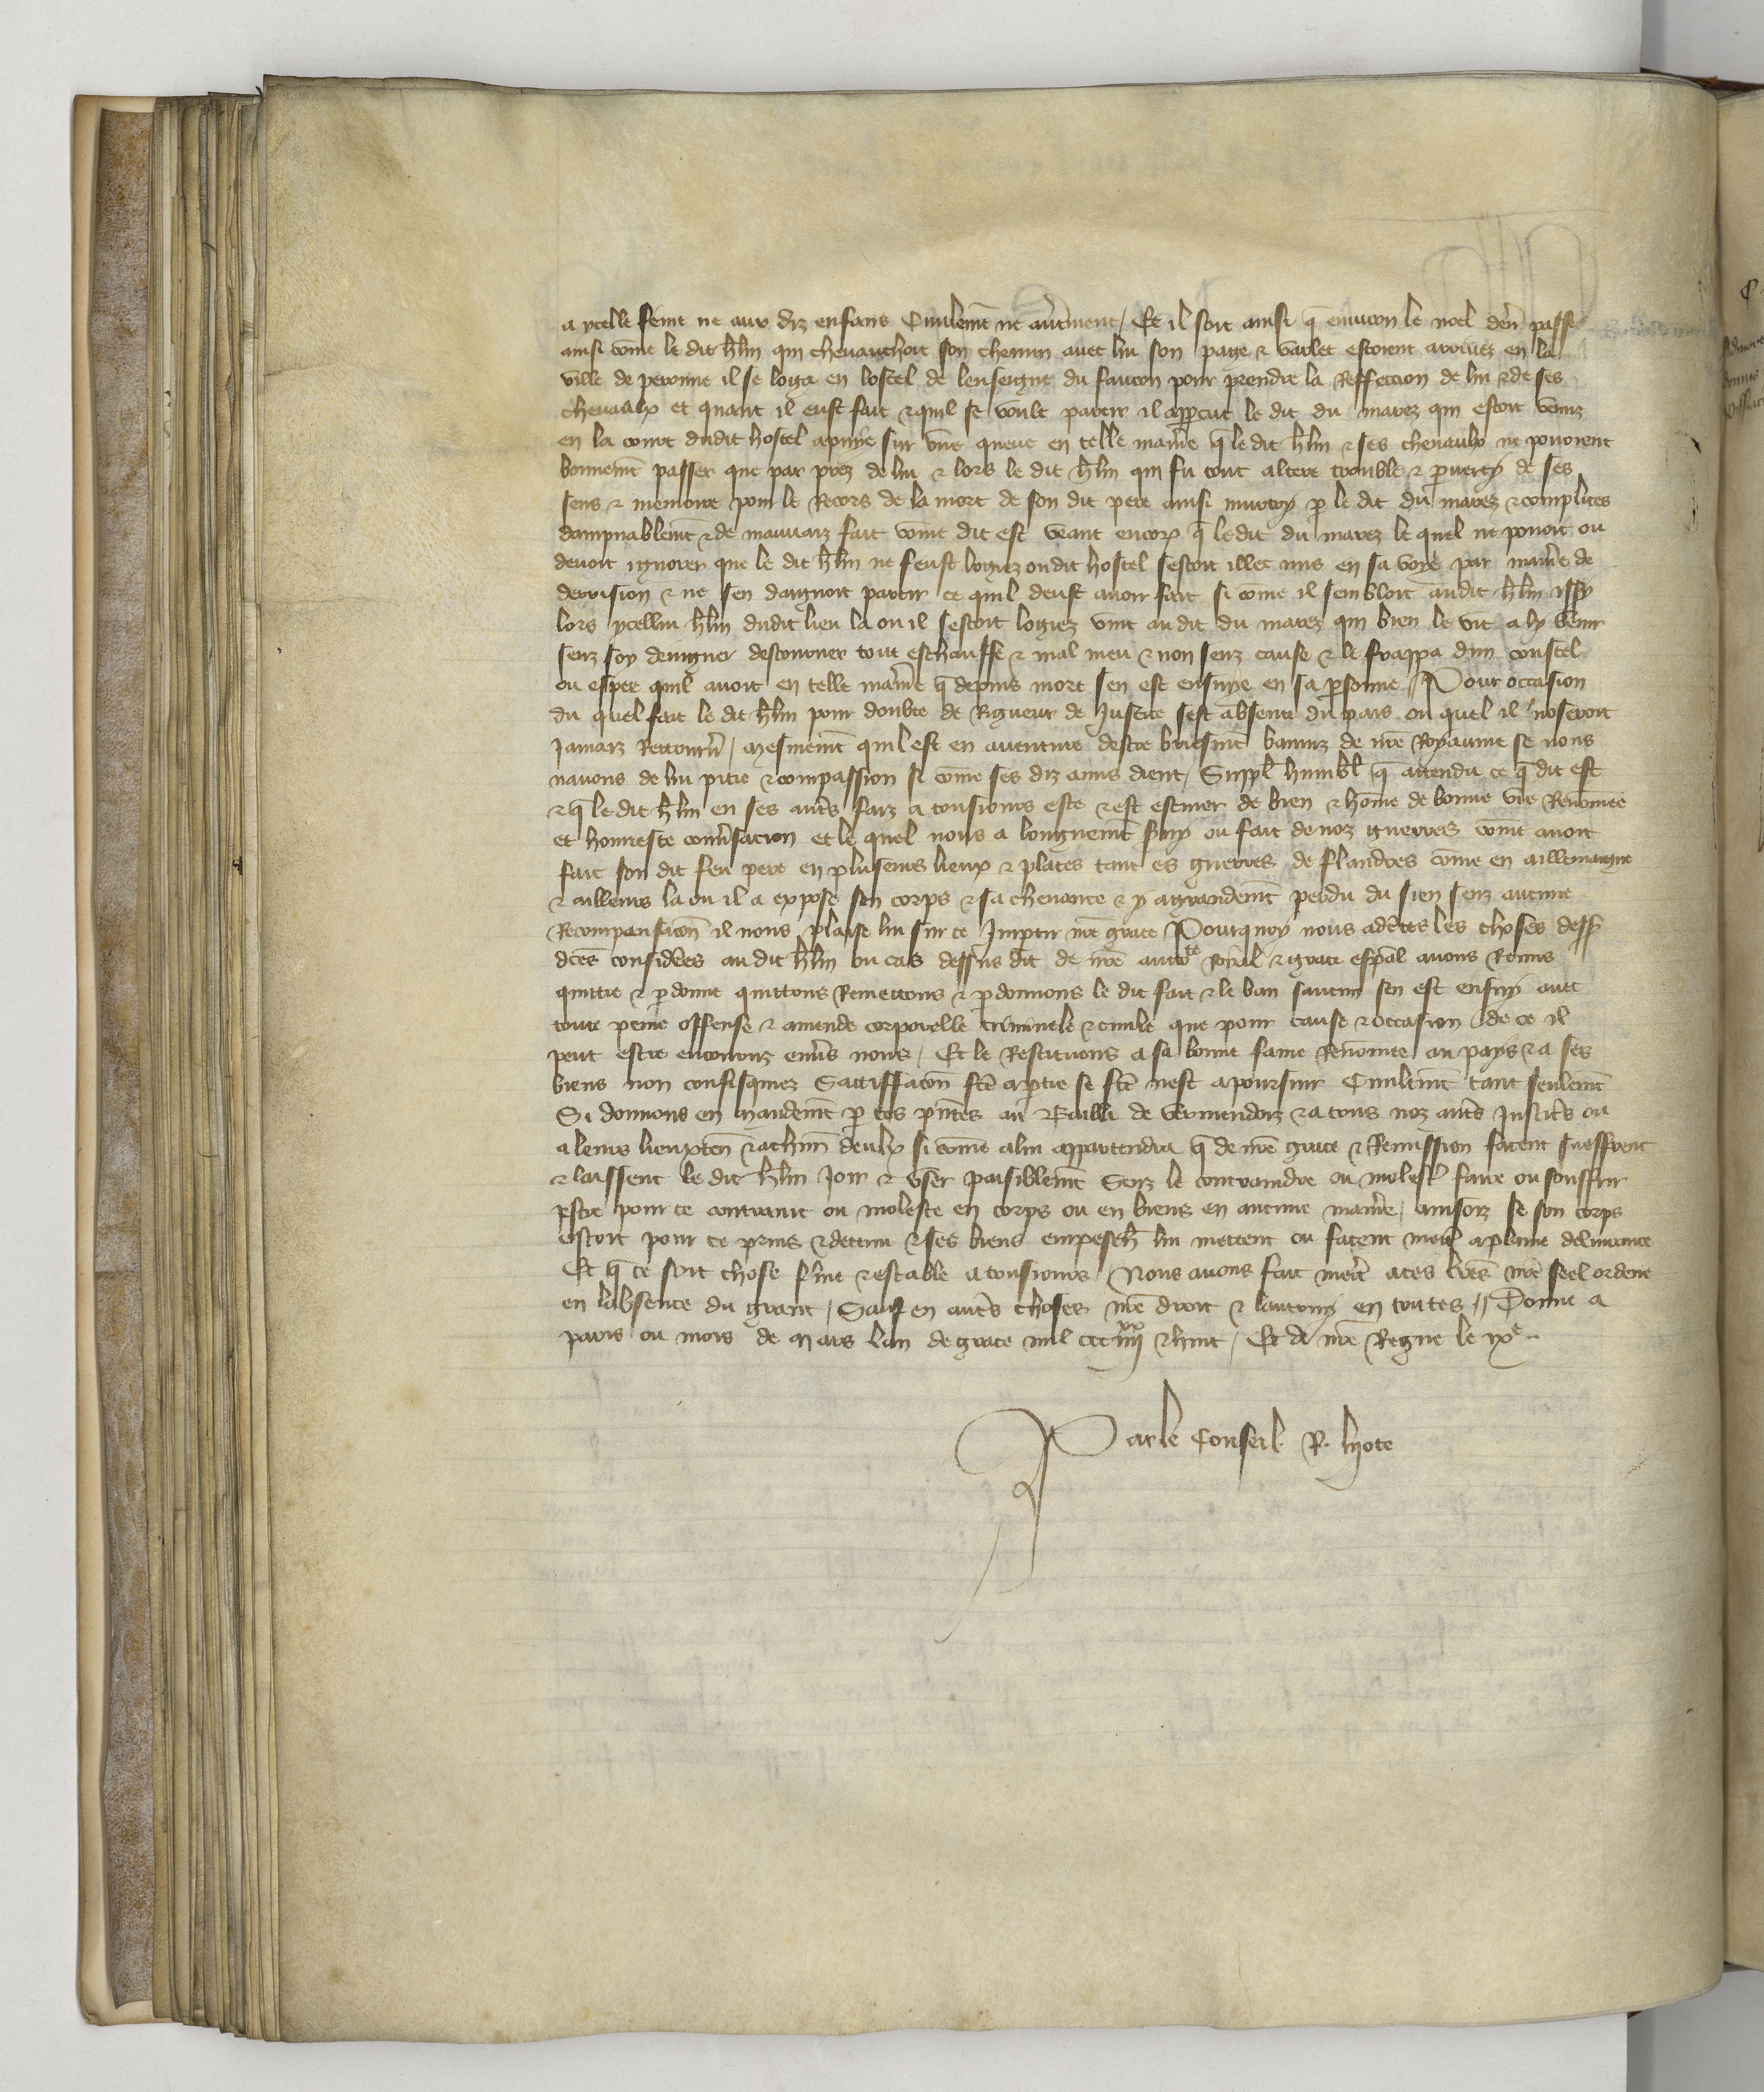 a ycelle feme ne aux diz enfans Civilemēt ne autrement / Et il soit ainsi q̄ environ le noel dern̄ passe
ainsi cōme le dit hellin qui chevauchoit son chemin avec lui son page & varlet estoient arrivez en la
ville de peronne il se loga en lostel de lenseigne du faucon pour prendre la Reffeccion de lui & de ses
chevaulx et quant il eust fait & quil se voult partir il appercut le dit du marez qui estoit venuz
en la court dudit hostel apuye sur vne queue en telle maniē q̄ le dit hellin & ses chevaulx ne povoient
bonnemēt passer que par prez de lui & lors le dit hellin qui fu tout altere trouble & pverty de ses
sens & memoire pour le Recors de la mort de son dit pere ainsi murtry p le dit du marez & complices
dampnablemēt & de mauvaiz fait cōme dit est veant encores q̄ le dit du marez le quel ne povoit ou
devoit ignorer que le dit hellin ne feust logiez oudit hostel sestoit illec mis en sa voye par maniē de
derrision & ne sen daignoit partir ce quil deust avoir fait si cōme il sembloit audit hellin yssy
lors ycellui hellin dudit lieu la ou il sestoit logiez vint au dit du marez qui bien le vit a ly venir
senz soy deuigner destourner tout eschauffe & mal meu & non senz cause & le frappa dun coustel
ou espee quil avoit en telle maniē q̄ depuis mort sen est ensuye en sa psonne // Pour occasion
du quel fait le dit hellin pour doubte de Rigueur de Justice sest absente du pais ou quel il noseroit
Jamaiz Retourn̄ / mesmemēt quil est en aventure destre briefmēt banniz de nr̄e Royaume se nous
navons de lui pitie & compassion si cōme ses diz amis dient / Suppl̄ humbl̄ q̄ attendu ce q̄ dit est
& q̄ le dit hellin en ses aut's faiz a tousiours este & est escuier de bien & hōme de bonne vie Renōmee
et honneste convsacion et le quel nous a longuemēt svy ou fait de noz guerres cōme avoit
fait son dit feu pere en plusieurs lieux & places tant es guerres de flandres cōme en aillemaigne
& ailleurs la ou il a expose son corps & sa chevance & y a grandemēt perdu du sien senz aucune
Recompansacōn il nous plaise lui sur ce Impartir nr̄e grace Pourquoy nous adc̄tes les choses dess
dcēs considēes au dit hellin ou cas dessus dit de nr̄e auctte Royal & grace espāl avons Remis
quittie & pdonne quittons Remettons & pdonnons le dit fait & le ban saucun sen est ensuy avec
toute peine offense & amende corporelle criminele & civile que pour cause & occasion de ce il
peut estre encouruz envs nous / Et le Restituons a sa bonne fame Renōmee au pays & a ses
biens non confisquez Satiffacōn fcē a ptie se fcē nest a poursuir Civilemēt tant seulemēt
Si donnons en mandemēt p ces pn̄tes au Bailli de vermendoiz & a tous noz aut's Justic's ou
a leurs lieuxten̄ & a chūn deulx si cōme a lui appartendra q̄ de nr̄e grace & Remission facent sueffrent
& laissent le dit hellin Joir & user paisiblemēt Senz le contraindre ou molest̄ faire ou souffrir
estre pour ce contraint ou moleste en corps ou en biens en aucune maniē / ainsoiz se son corps
estoit pour ce prins & detenu & ses biens empesch̄ lui mettent ou facent mett' a plaine delivrance
Et q̄ ce soit chose ferme & estable a tousiours / Nous avons fait mett' a ces lr̄es nr̄e seel ordene
en labsence du grant / Sauf en aut's choses nr̄e droit & lautruy en toutes // Donne a
paris ou mois de mars lan de grace mil ccc iiiixx & huit / Et de nr̄e Regne le ixe
Par le Conseil. P. lyote